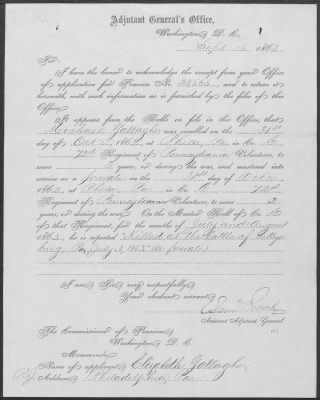 Adjutant General's Office,
Washington, D. C.,
Sept 16, 1863
Sir:
I have the honor to acknowledge the receipt from your Office
of application for Pension No.      , and to return it
herewith, with such information as is furnished by the files of this
Office.
It appears from the Rolls on file in this Office, that
Michael Gallagher was enrolled on the 31st
day of       , 1862, at Phila, Pa, in Co.
72nd Regiment of Pennsylvania Volunteers, to serve
years, or during the war, and mustered into
service as a Private on the      day of      ,
1862, at Phila, Pa, in Co.      , 72nd
Regiment of Pennsylvania Volunteers, to serve 3
years, or during the war. On the Muster Roll of Co.
of that Regiment, for the months of July and August
1863, he is reported "Killed at the Battle of Gettys
burg, Pa, July 3, 1863"
I am Sir, very respectfully,
Your obedient servant,
Assistant Adjutant General.
The Commissioner of Pensions,
Washington, D. C.
Memoranda.
Name of applicant, Elizabeth Gallagher
Address, Philadelphia, Pa